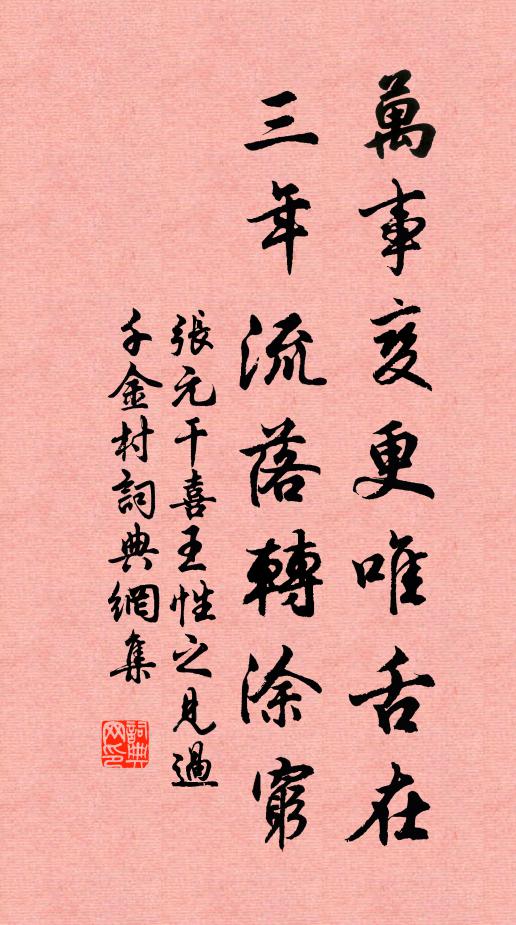 萬事变更唯舌在
三年流落轉涂窮
張元干喜王性之見過
千金村詞典網集
詞典网印